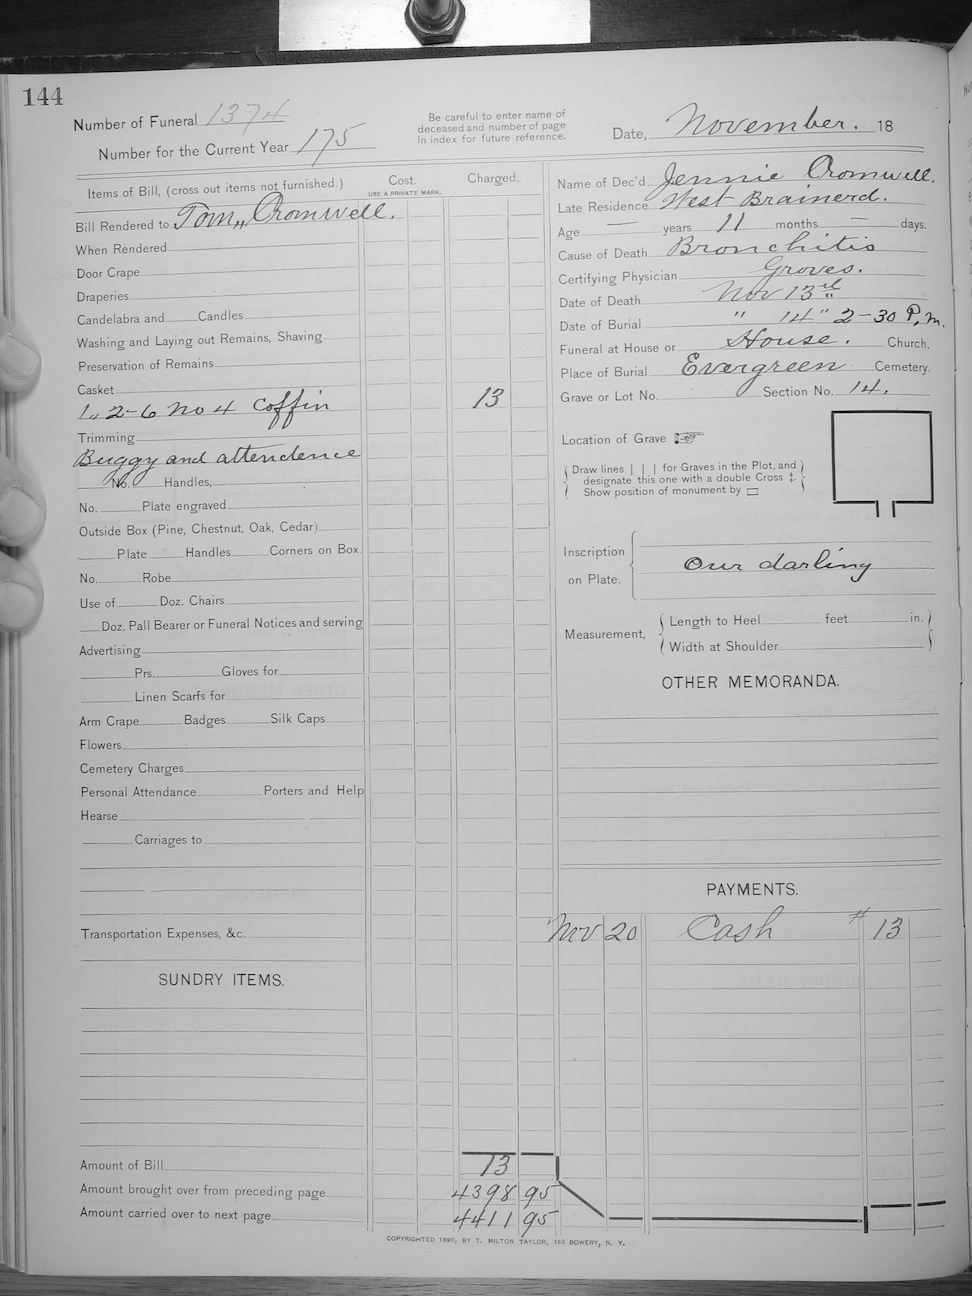 144
Number of Funeral 1374
Be careful to enter name of
deceased and number of page
In index for future reference.
Date, November. 18
Number for the Current Year 175
Items of Bill, (cross out items not furnished.)
Cost.
USE A PRIVATE MARK.
Charged.
Bill Rendered to Tom,, Cromwell.
When Rendered
Door Crape
Draperies
Candelabra and Candles
Washing and Laying out Remains, Shaving
Preservation of Remains
Casket
1,, 2-6 No 4 Coffin 13
Trimming
Buggy and attendence
No. Handles,
No. Plate engraved
Outside Box (Pine, Chestnut, Oak, Cedar)
Plate Handles Corners on Box.
No. Robe
Use of Doz. Chairs
Doz. Pall Bearer or Funeral Notices and serving
Advertising
Prs. Gloves for
Linen Scarfs for
Arm Crape Badges Silk Caps
Flowers
Cemetery Charges
Personal Attendance Porters and Help
Hearse
Carriages to
Transportation Expenses, &c.
SUNDRY ITEMS.
Amount of Bill 13
Amount brought over from preceding page 4398 95
Amount carried over to next page 4411 95
Name of Dec'd Jennie Cromwell.
Late Residence West Brainerd.
Age — years 11 months — days.
Cause of Death Bronchitis
Certifying Physician Groves.
Date of Death Nov 13
Date of Burial " 14" 2-30 P.m.
Funeral at House or House. Church.
Place of Burial Evergreen Cemetery.
Grave or Lot No. Section No. 14.
Location of Grave ☞
Draw lines | | | for Graves in the Plot, and
designate this one with a double Cross ‡.
Show position of monument by ▭
Inscription
on Plate.
Our darling
Measurement,
Length to Heel feet in.
Width at Shoulder
OTHER MEMORANDA.
PAYMENTS.
Nov 20 Cash # 13
COPYRIGHTED 1890, BY T. MILTON TAYLOR, 163 BOWERY, N. Y.